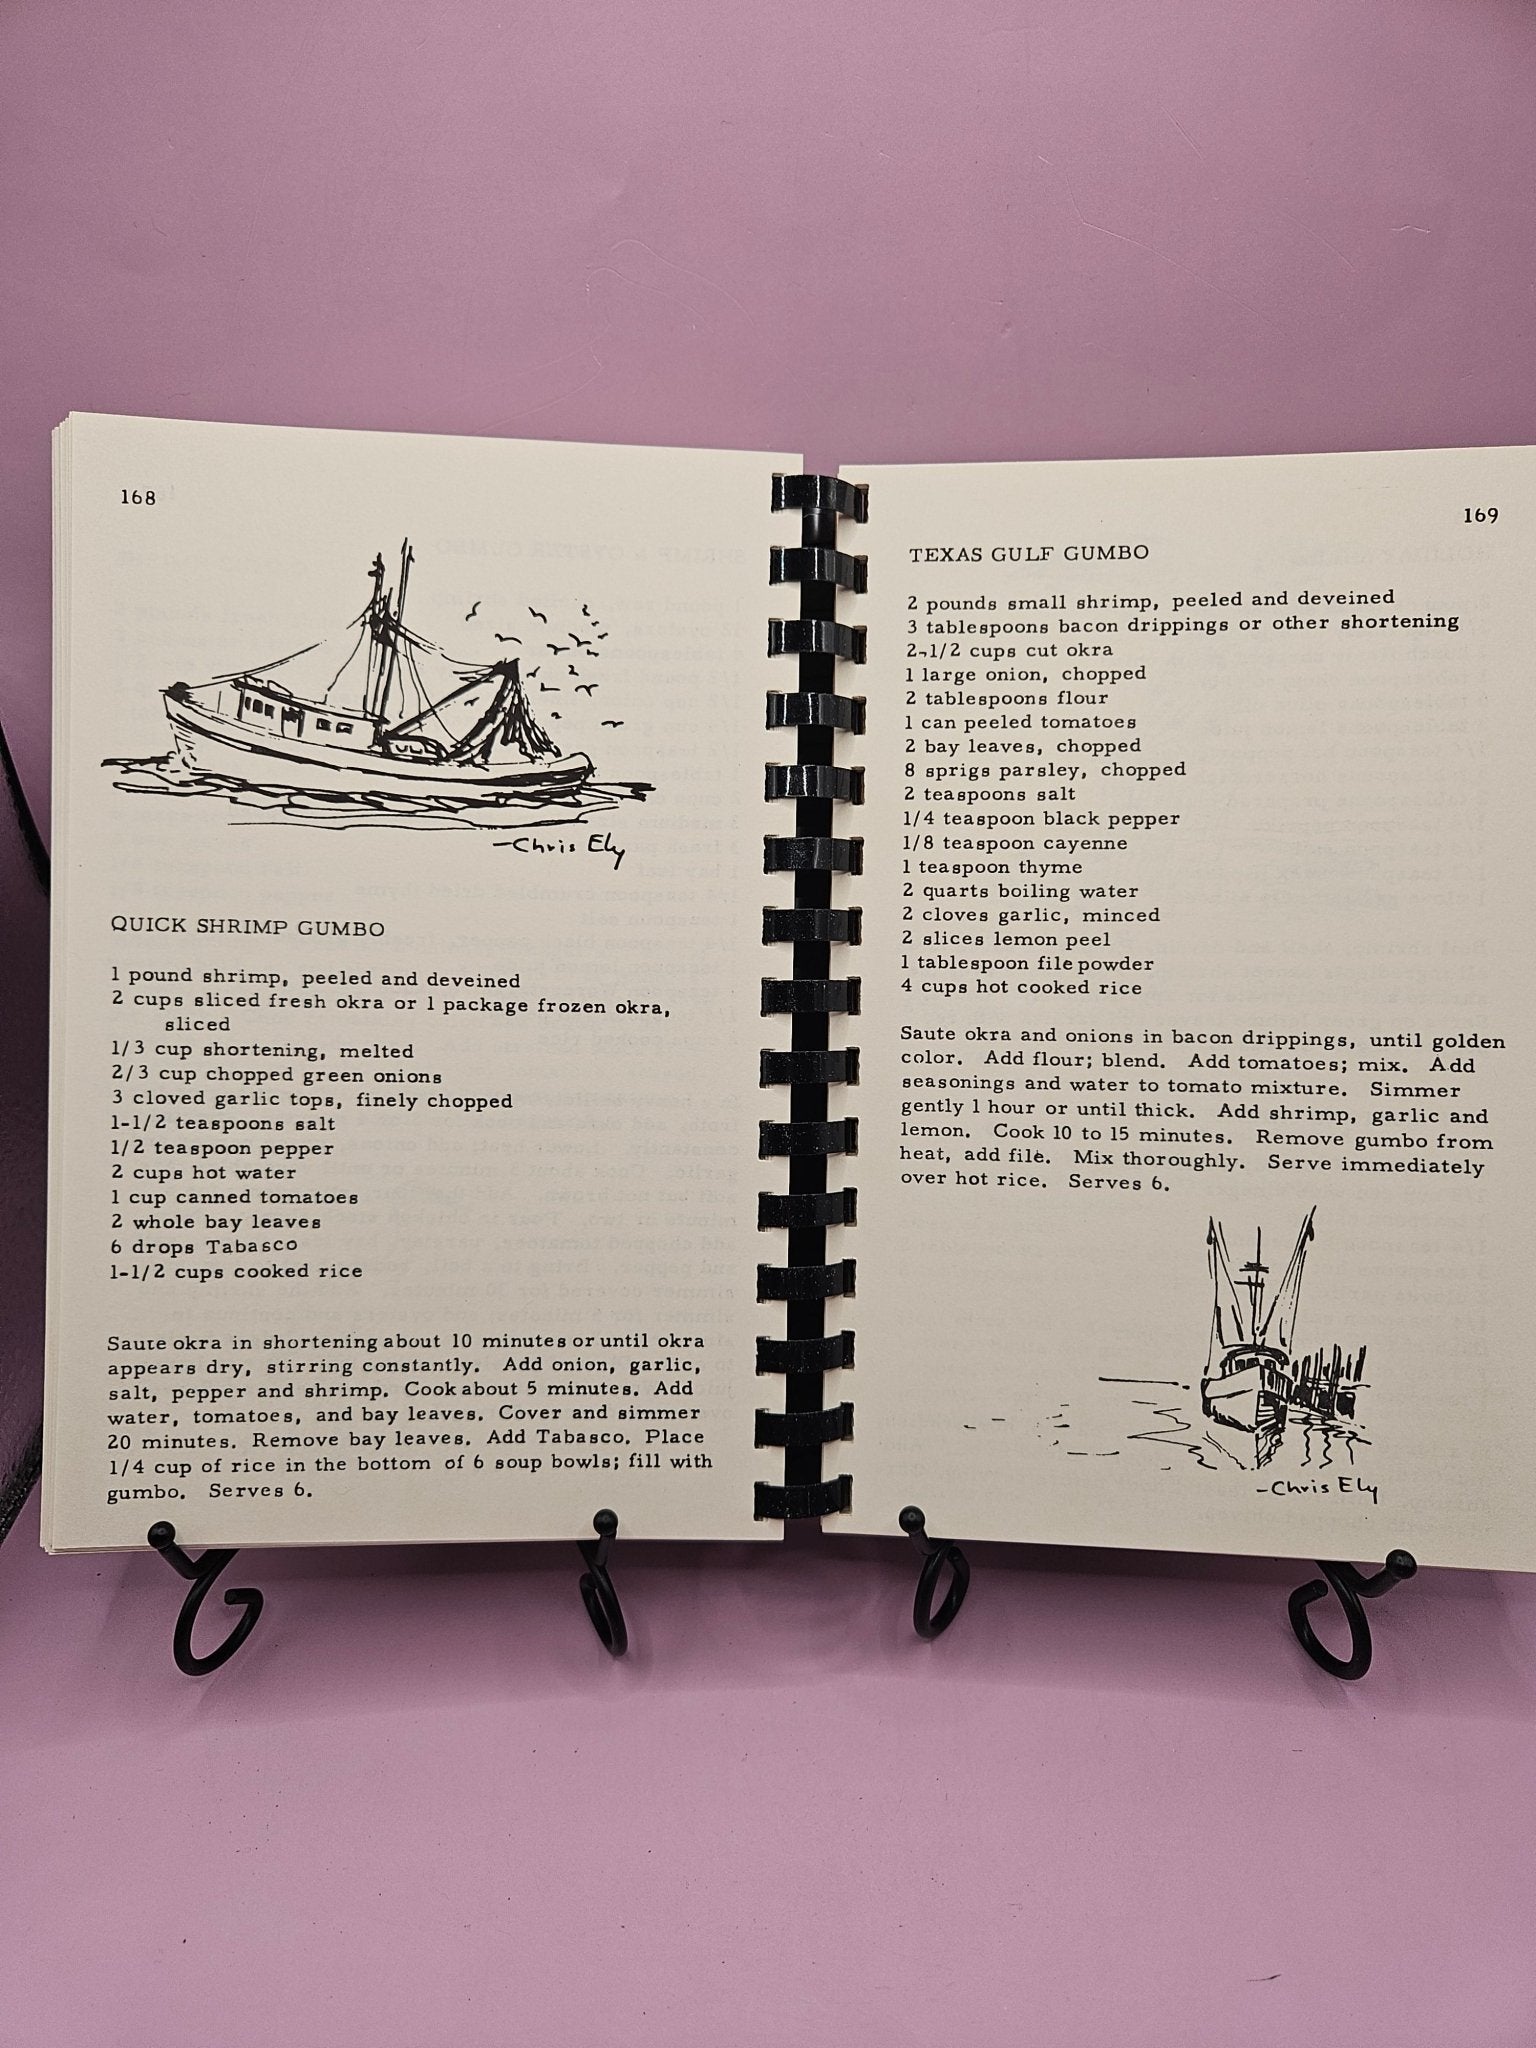 168
—Chris Ely
QUICK SHRIMP GUMBO
1 pound shrimp, peeled and deveined
2 cups sliced fresh okra or 1 package frozen okra,
sliced
1/3 cup shortening, melted
2/3 cup chopped green onions
3 cloved garlic tops, finely chopped
1-1/2 teaspoons salt
1/2 teaspoon pepper
2 cups hot water
1 cup canned tomatoes
2 whole bay leaves
6 drops Tabasco
1-1/2 cups cooked rice
Saute okra in shortening about 10 minutes or until okra
appears dry, stirring constantly. Add onion, garlic,
salt, pepper and shrimp. Cook about 5 minutes. Add
water, tomatoes, and bay leaves. Cover and simmer
20 minutes. Remove bay leaves. Add Tabasco. Place
1/4 cup of rice in the bottom of 6 soup bowls; fill with
gumbo. Serves 6.
169
TEXAS GULF GUMBO
2 pounds small shrimp, peeled and deveined
3 tablespoons bacon drippings or other shortening
2-1/2 cups cut okra
1 large onion, chopped
2 tablespoons flour
1 can peeled tomatoes
2 bay leaves, chopped
8 sprigs parsley, chopped
2 teaspoons salt
1/4 teaspoon black pepper
1/8 teaspoon cayenne
1 teaspoon thyme
2 quarts boiling water
2 cloves garlic, minced
2 slices lemon peel
1 tablespoon file powder
4 cups hot cooked rice
Saute okra and onions in bacon drippings, until golden
color. Add flour; blend. Add tomatoes; mix. Add
seasonings and water to tomato mixture. Simmer
gently 1 hour or until thick. Add shrimp, garlic and
lemon. Cook 10 to 15 minutes. Remove gumbo from
heat, add filè. Mix thoroughly. Serve immediately
over hot rice. Serves 6.
—Chris Ely